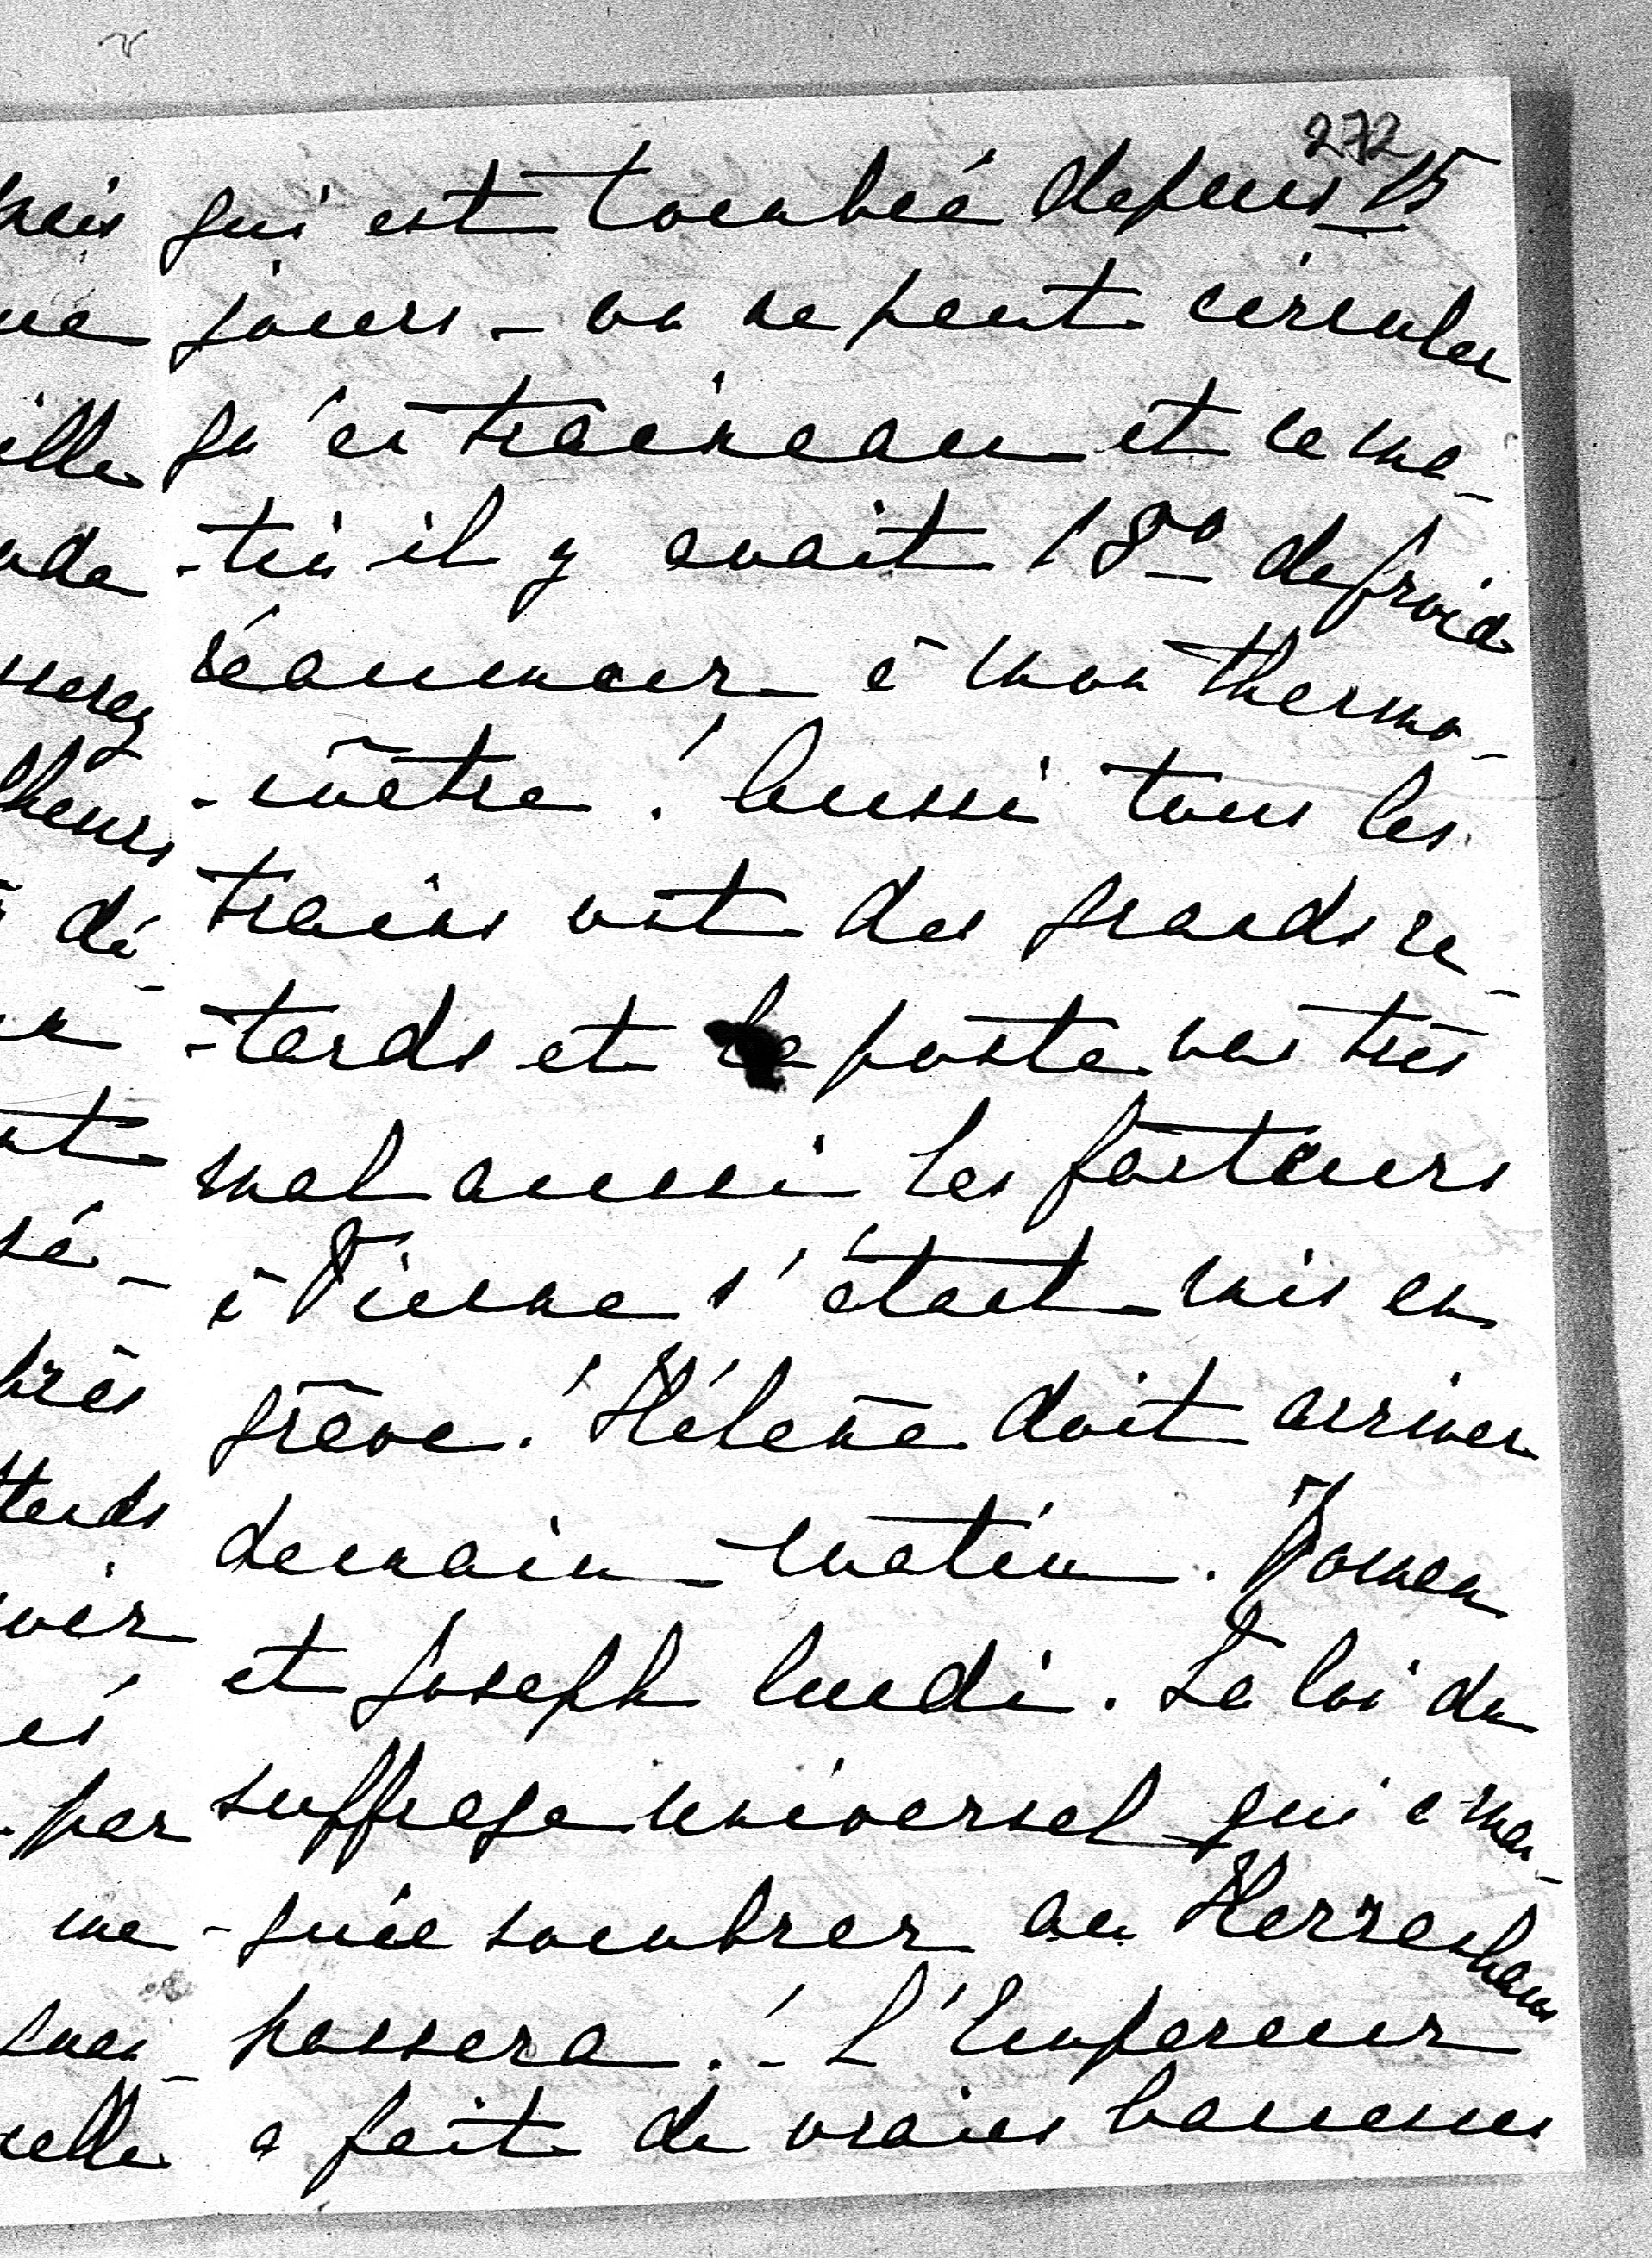 272
qui est tombée depuis 15
jours - on ne peut circuler
qu'en traineau et ce ma-
-tin il y avait 18° de froid
réaumur à mon thermo-
-mètre ! Aussi tous les
trains ont des grands re-
-tards et la poste va très
mal aussi les facteurs
à Vienne s'étant mis en
grève ! Hélène doit arriver
demain matin.
et Joseph lundi. La loi du
suffrage universel qui a man-
-quée sombrer au Herrenhaus
passera ! - L'Empereur
a fait de vraies bassesses